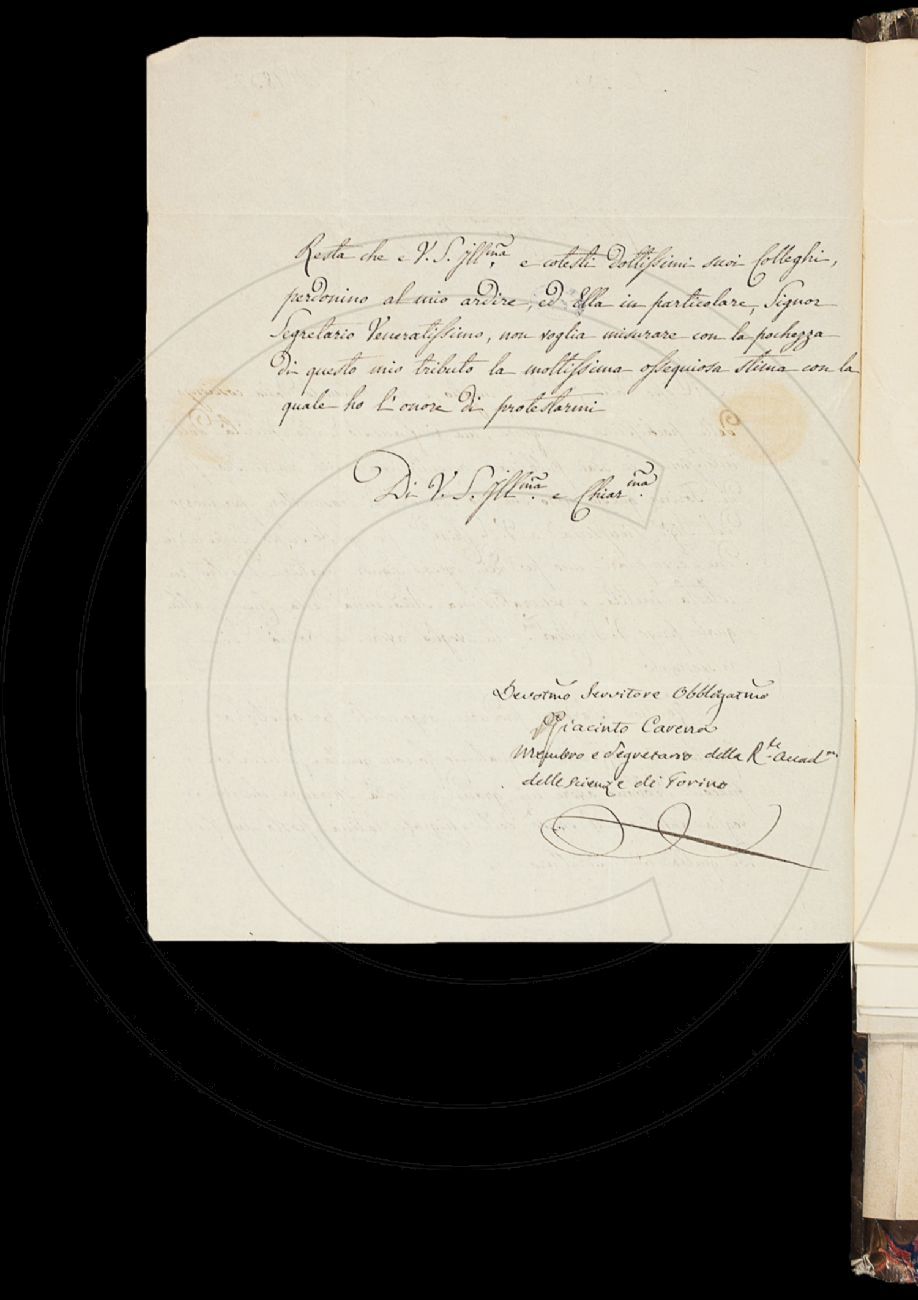 Resta che e V. S. Illma. e cotesti dottissimi suoi Colleghi,
perdonino al mio ardire, ed Ella in particolare, Signor
Segretario Veneratissimo, non voglia misurare con la pochezza
di questo mio tributo la moltissima ossequiosa stima con la
quale ho l'onore di protestarmi
Di V. S. Illma. e Chiarma.
Devotmo Servitore Obbligatmo
Giacinto Carena
Membro e Segretario della Rle. Accadma
delle Scienze di Torino